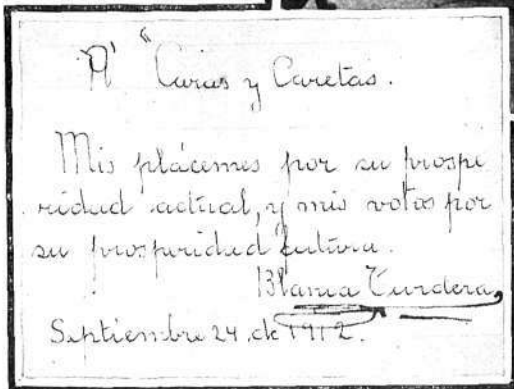 A' "Caras y Caretas.
Mis plácemes por su prospe
ridad actual, y mis votos por
su prosperidad futura.
Blanca Turdera,
Septiembre 24 de 1912.